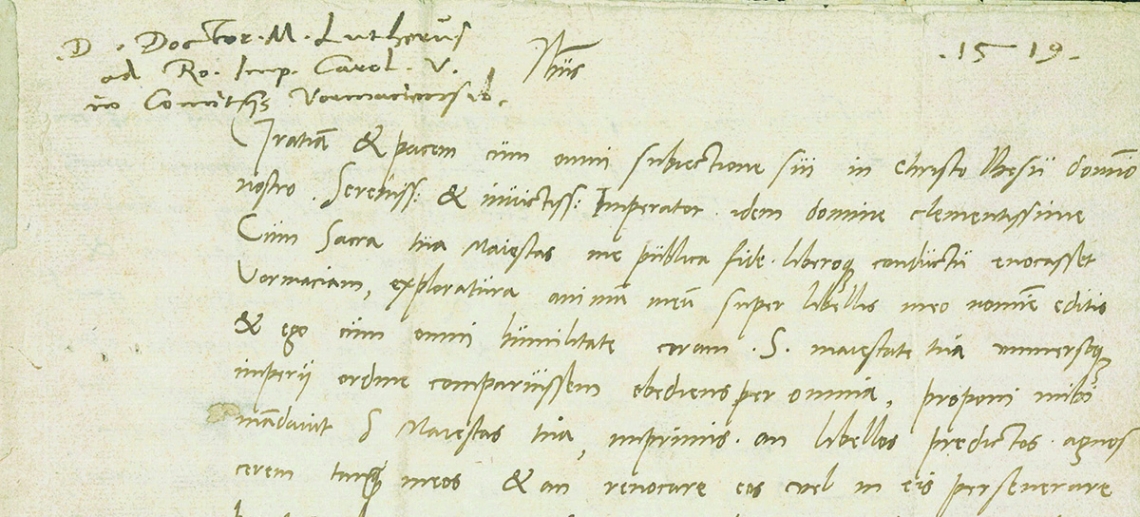 D. Doctor. M. Lutherus
ad Ro. Imp. Carol. V.
in Comitijs Vormaciensib.
Ihus
.1519.
Gratiā & pacem cūm omni subiectione sūi in christo Ihesū domīo
nostro. Sereniss: & inūictiss: Imperator. idem domine clementissime
Cūm Sacra tūa Maiestas me pūblica fide. liberoq; condūctū euocasset
Vormaciam, exploratūra animū meū super libellis meo nomīe editis
& ego cūm omni hūmilitate coram .S. maiestate tūa vniuersoq;
imperij ordine comparūissem obediens per omnia, proponi mihi
mādauit S Maiestas tūa, inprimis. an libellos predictos. agnos
cerem tanq meos & an reuocare eos vel in eis perseuerare